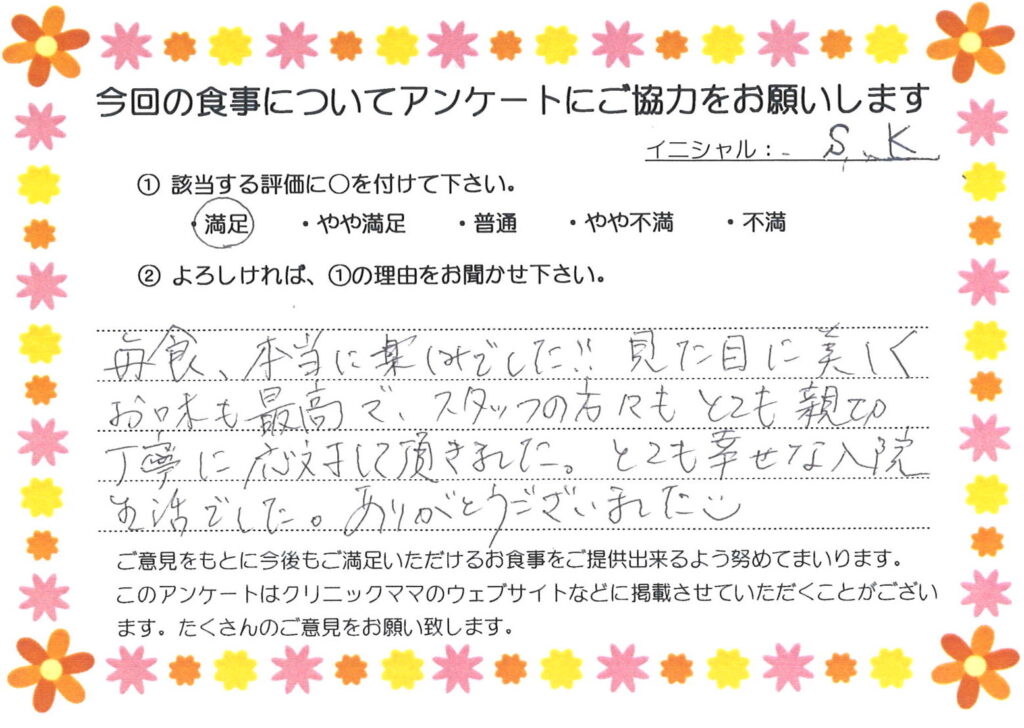 今回の食事についてアンケートにご協力をお願いします
イニシャル： S, K
① 該当する評価に○を付けて下さい。
・満足 ・やや満足 ・普通 ・やや不満 ・不満
② よろしければ、①の理由をお聞かせ下さい。
毎食、本当に楽しみでした!! 見た目に美しく
お味も最高で、スタッフの方々もとても親切
丁寧に応対して頂きました。とても幸せな入院
生活でした。ありがとうございました
ご意見をもとに今後もご満足いただけるお食事をご提供出来るよう努めてまいります。
このアンケートはクリニックママのウェブサイトなどに掲載させていただくことがござい
ます。たくさんのご意見をお願い致します。